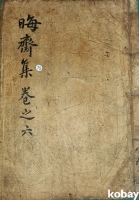 晦齋集 卷之六
kobay